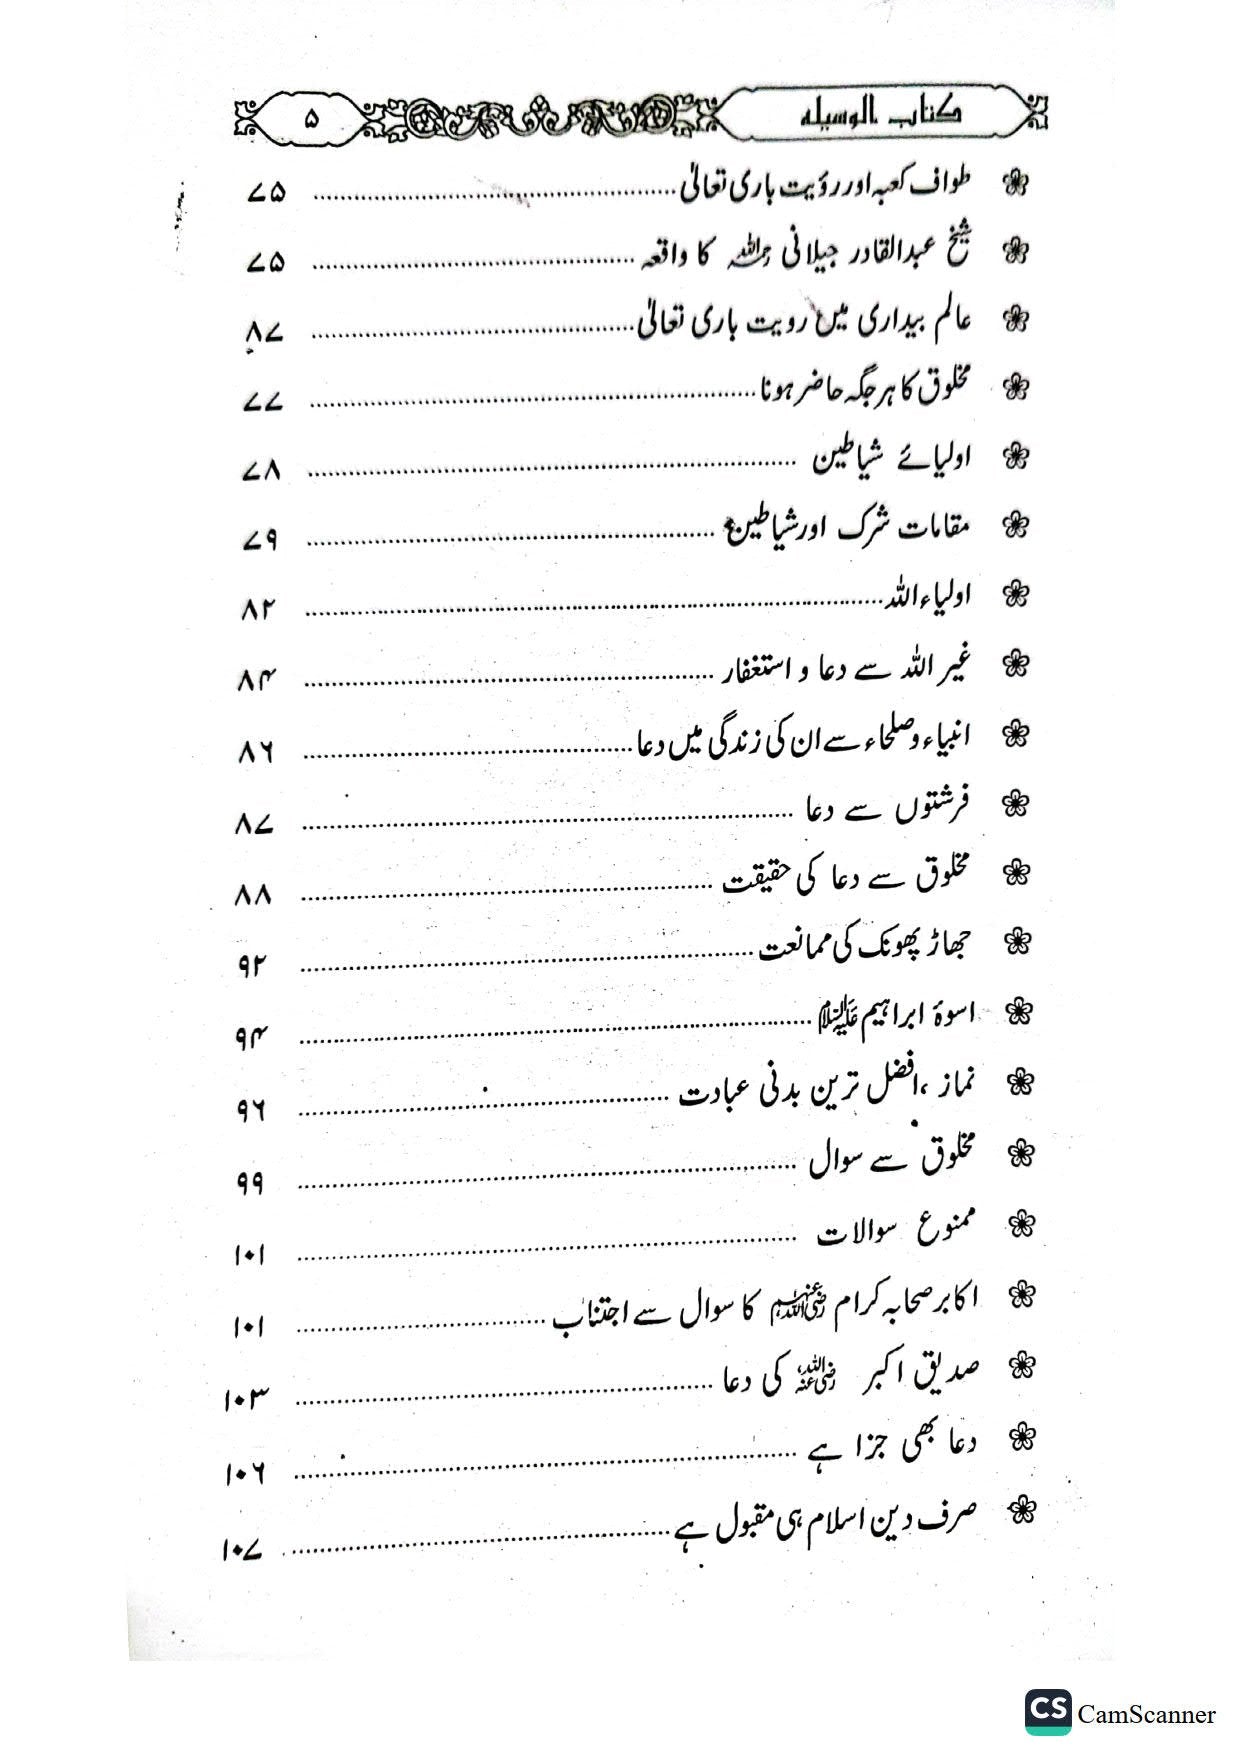 کتاب الوسیلہ ۵
طواف کعبہ اور رؤیت باری تعالیٰ ۷۵
شیخ عبدالقادر جیلانی رحمہ اللہ کا واقعہ ۷۵
عالم بیداری میں رویت باری تعالیٰ ۸۷
مخلوق کا ہر جگہ حاضر ہونا ۷۷
اولیائے شیاطین ۷۸
مقامات شرک اور شیاطین ۷۹
اولیاء اللہ ۸۲
غیر اللہ سے دعا و استغفار ۸۴
انبیاء و صلحاء سے ان کی زندگی میں دعا ۸۶
فرشتوں سے دعا ۸۷
مخلوق سے دعا کی حقیقت ۸۸
جھاڑ پھونک کی ممانعت ۹۲
اسوۂ ابراہیم علیہ السلام ۹۴
نماز، افضل ترین بدنی عبادت ۹۶
مخلوق سے سوال ۹۹
ممنوع سوالات ۱۰۱
اکابر صحابہ کرام رضی اللہ عنہم کا سوال سے اجتناب ۱۰۱
صدیق اکبر رضی اللہ عنہ کی دعا ۱۰۳
دعا بھی جزا ہے ۱۰۶
صرف دین اسلام ہی مقبول ہے ۱۰۷
CS CamScanner